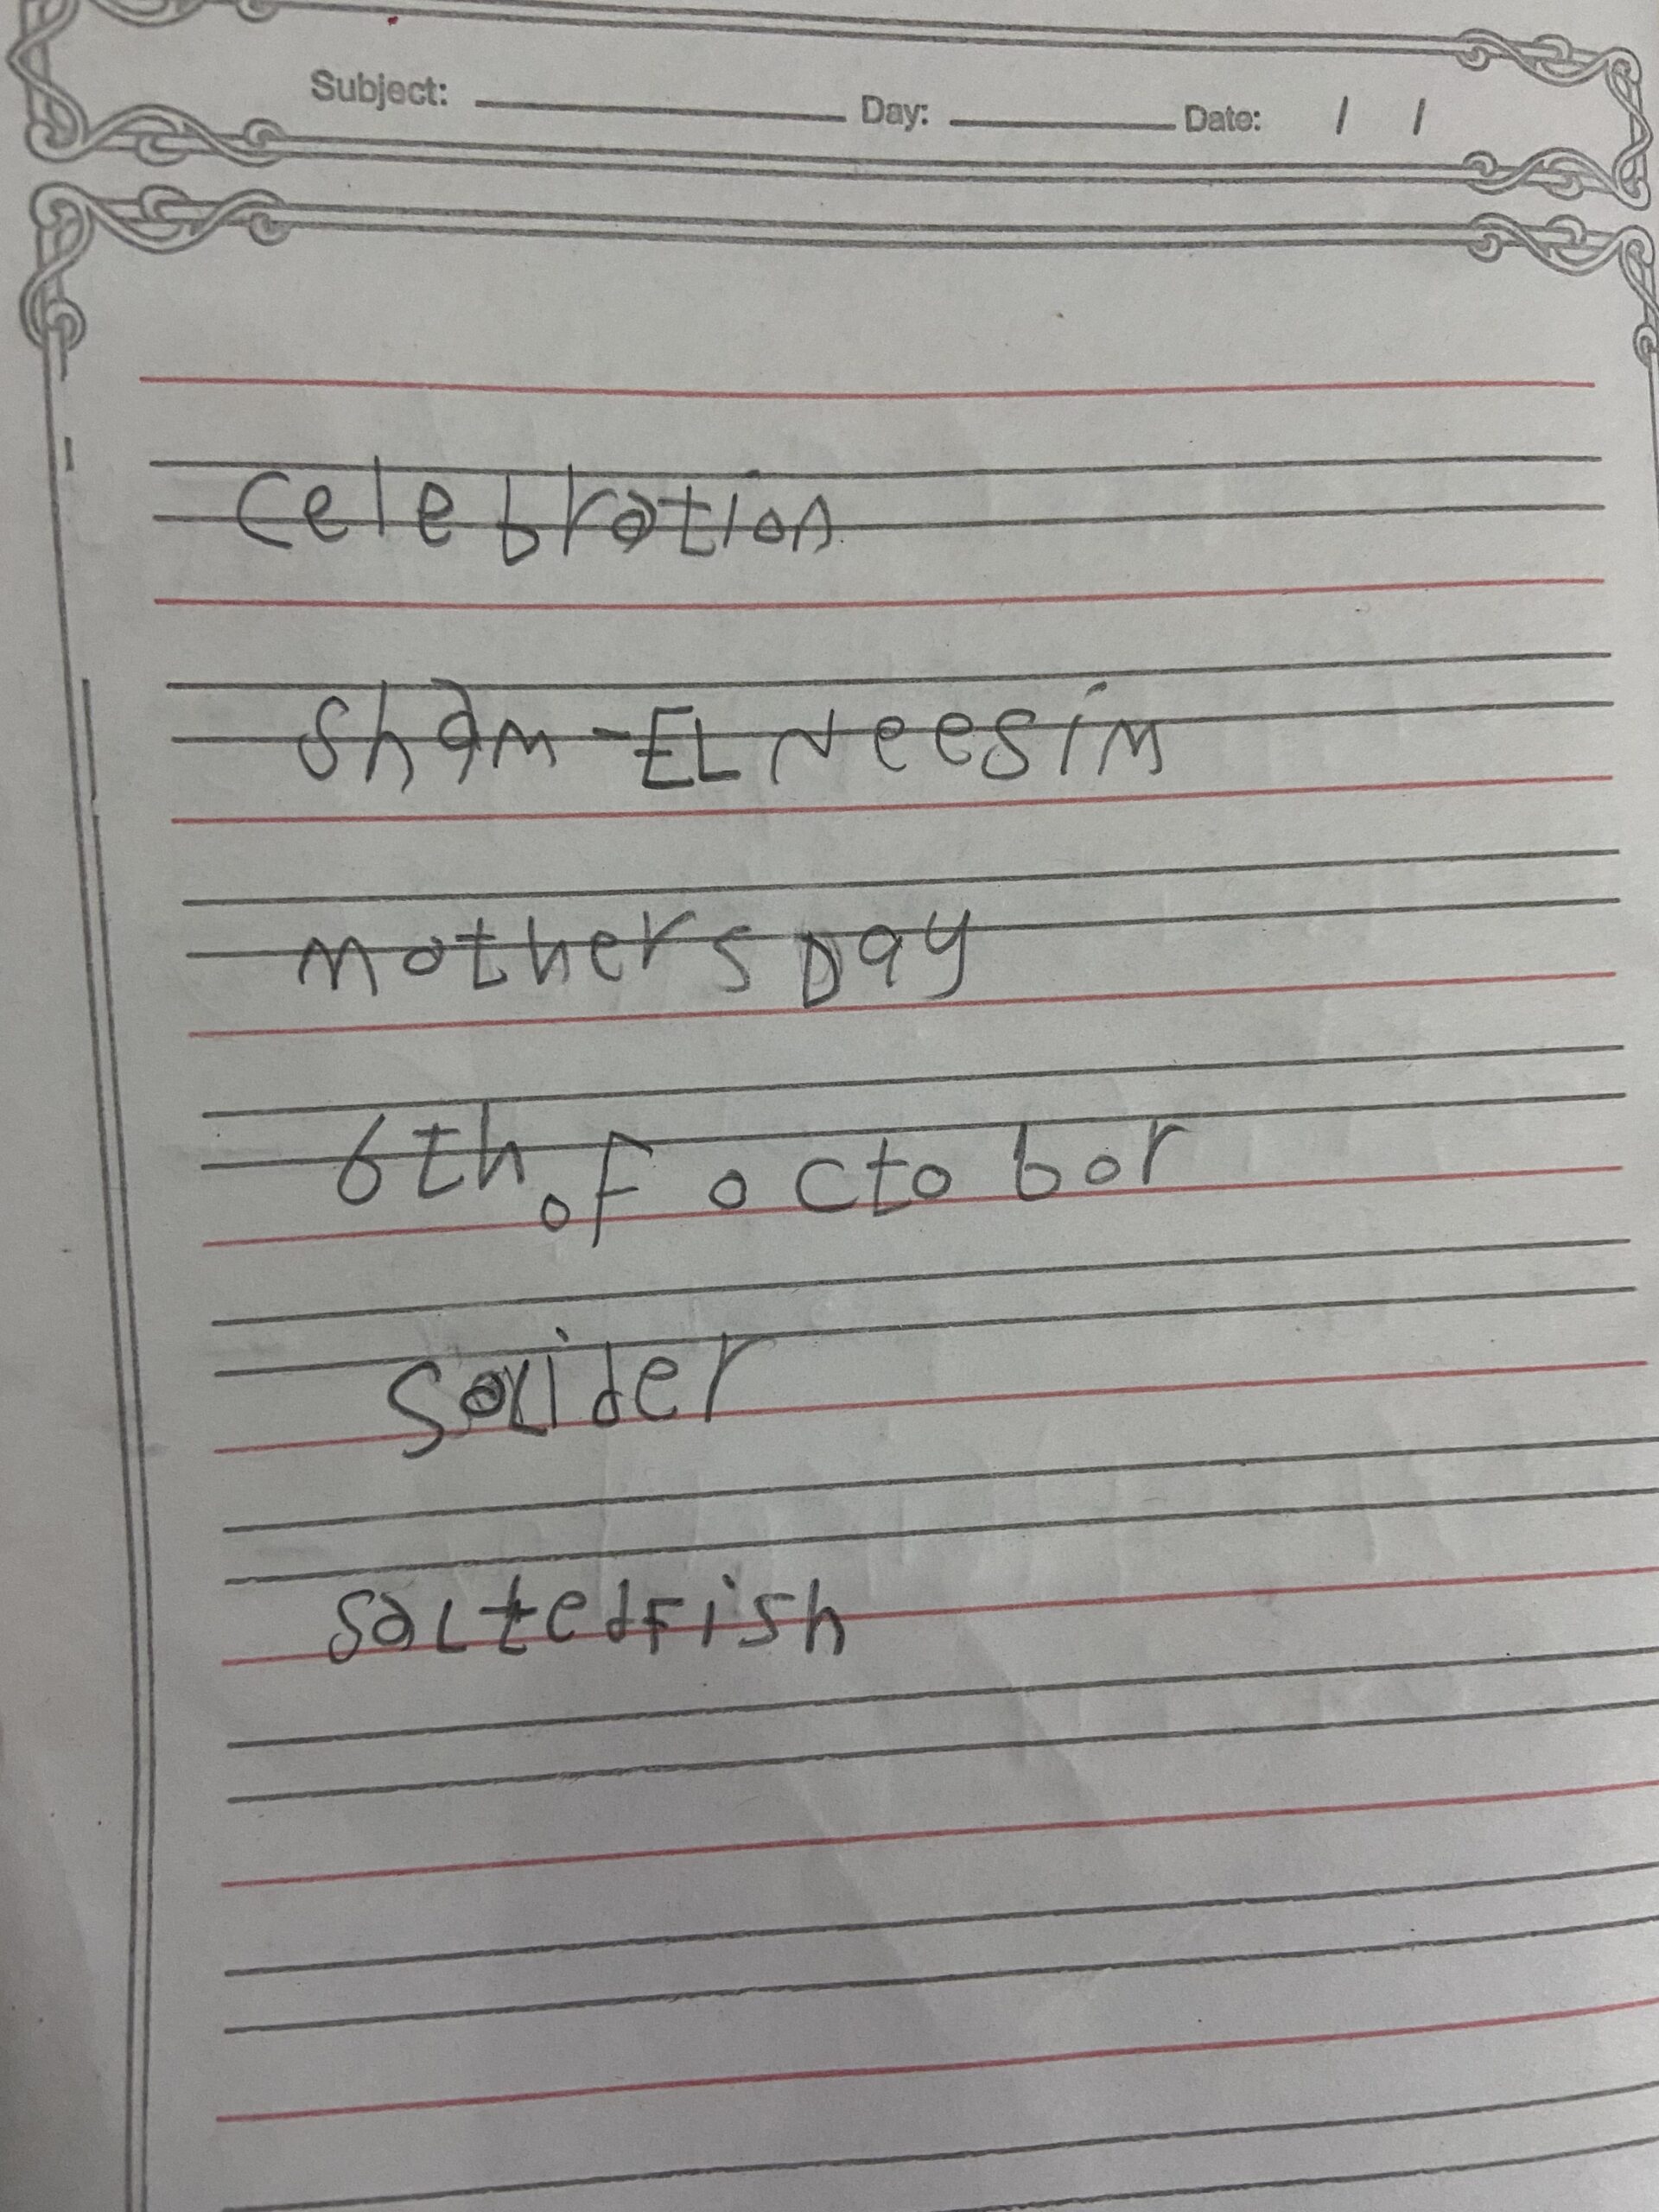 Subject: Day: Date: / /
celebration
sham-EL Neesim
mothers Day
6th of octobor
solider
saltedfish